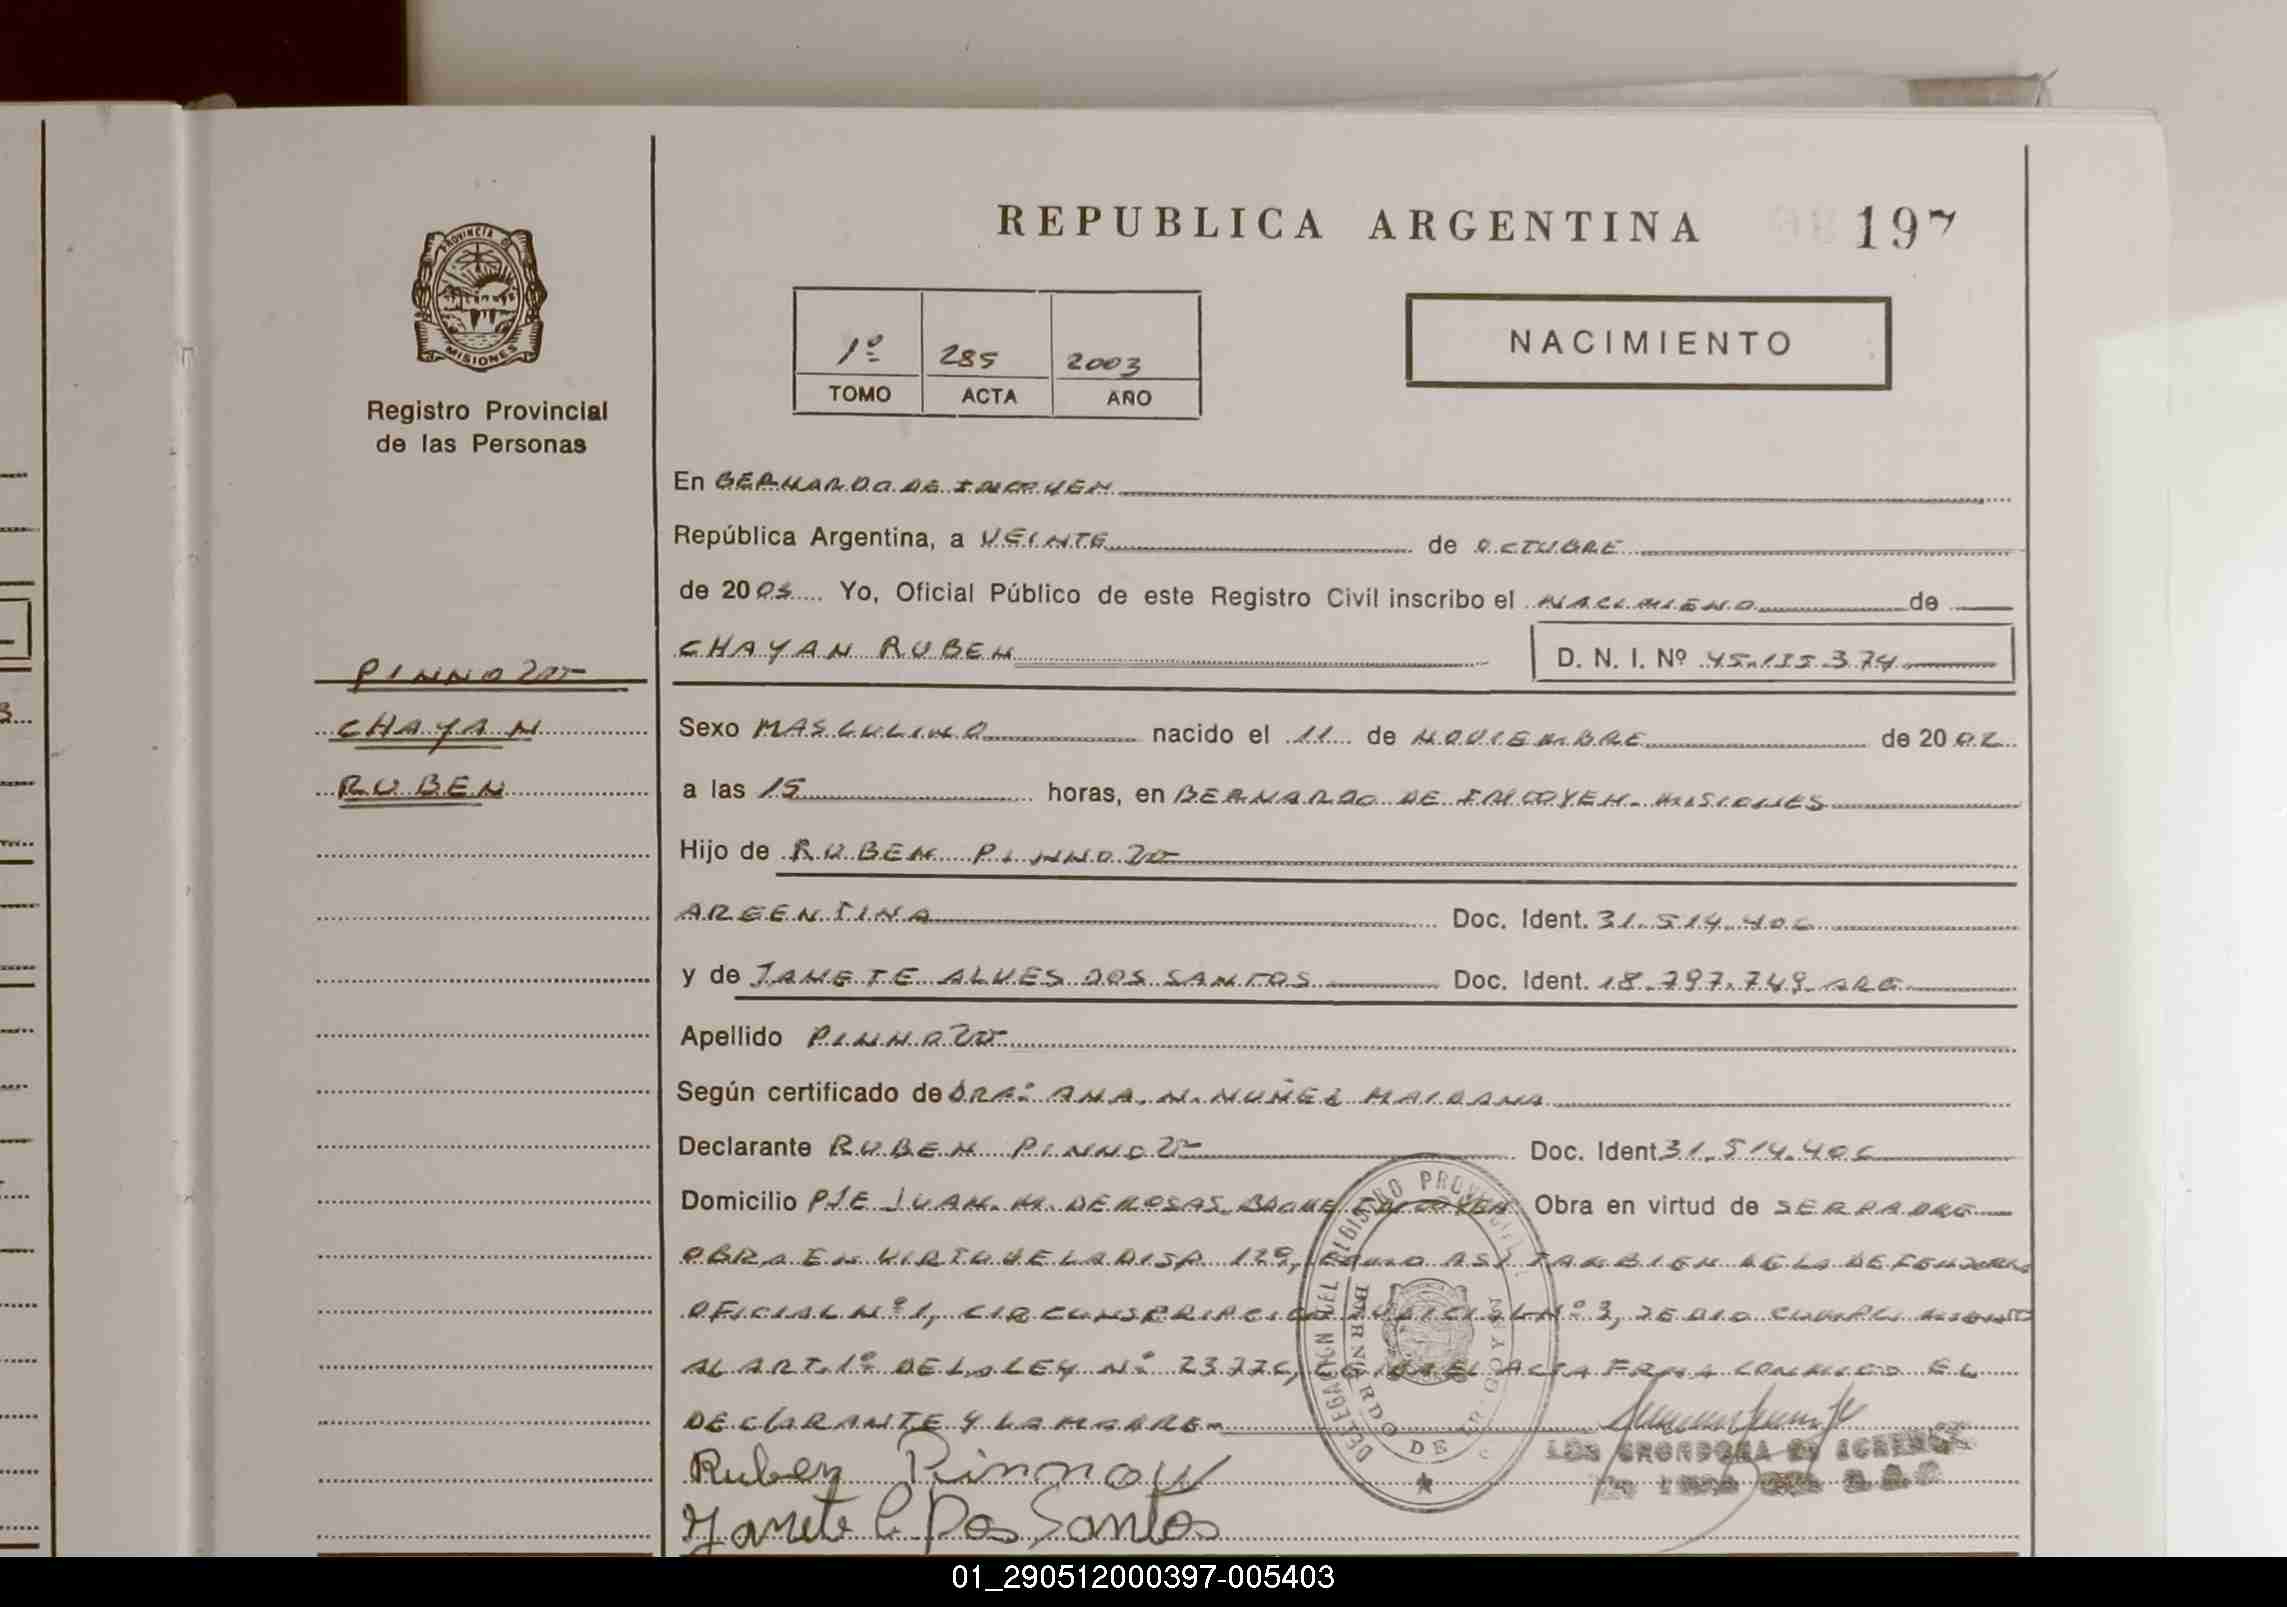 REPUBLICA ARGENTINA 197
PROVINCIA DE
MISIONES
Registro Provincial
de las Personas
NACIMIENTO
1º 285 2003
TOMO ACTA AÑO
En BERNARDO DE IRIGOYEN
República Argentina, a VEINTE de OCTUBRE
de 2003 Yo, Oficial Público de este Registro Civil inscribo el NACIMIENO de
CHAYAN RUBEN D. N. I. Nº 45.135.374
PINNOW
CHAYAN
RUBEN
Sexo MASCULINO nacido el 11 de NOVIEMBRE de 2002
a las 15 horas, en BERNARDO DE IRIGOYEN. MISIONES
Hijo de RUBEN PINNOW
ARGENTINA Doc. Ident. 31.514.406
y de JANETE ALVES DOS SANTOS Doc. Ident. 18.797.749 ARG
Apellido PINNOW
Según certificado de DRA: ANA. N. NUÑEZ MAIDANA
Declarante RUBEN PINNOW Doc. Ident 31.514.406
Domicilio PJE JUAN. M. DE ROSAS. Obra en virtud de SER PADRE
OBRA EN LA DISP. 129, COMO ASI TAMBIEN DE LA DEFENSORIA
OFICIAL Nº 1, CIRCUNSCRIPCION JUDICIAL Nº 3, SE DIO CUMPLIMIENTO
AL ART. 1º DE LA LEY Nº 23776, EL ACTA FRMA CONMIGO EL
DECLARANTE Y LA MADRE
Ruben Pinnow
Janete Dos Santos
DELEGACION DEL REGISTRO PROVINCIAL
BERNARDO DE IRIGOYEN
01_290512000397-005403